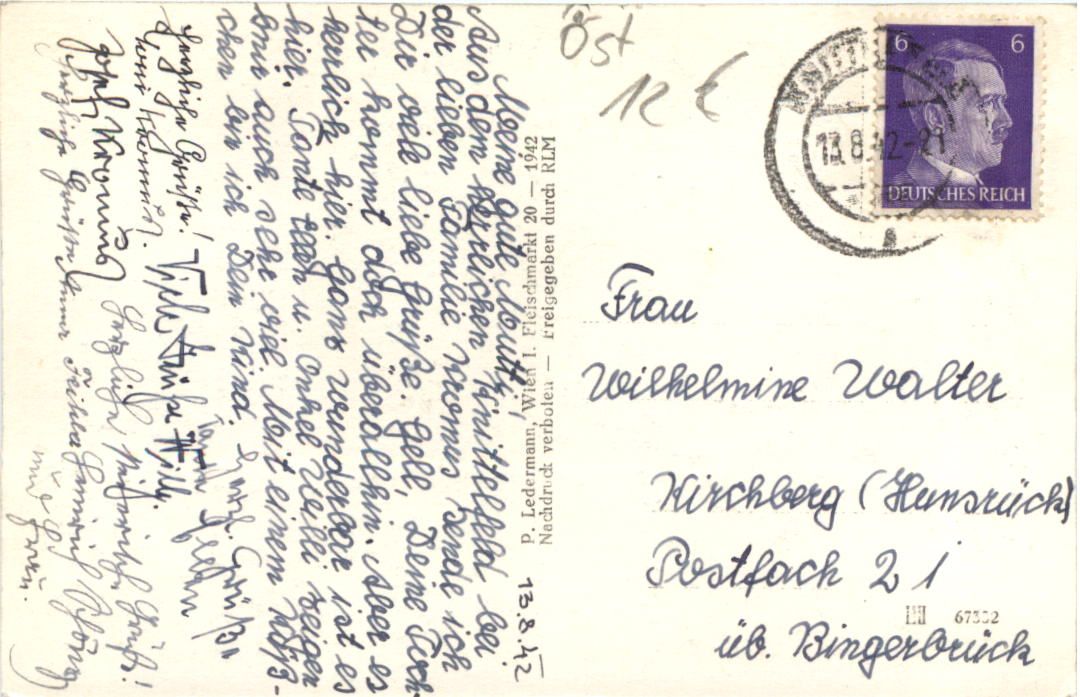 Meine gute Mutti,
Aus dem herrlichen Knittelfeld bei
der lieben Familie Kromus sende ich
Dir viele liebe Grüße. Gell, Deine Toch-
ter kommt doch überallhin. Aber es
herrlich hier. Ganz wunderbar ist es
hier. Tante u. Onkel Willi zeigen
mir auch sehr viel. Mit einem Küß-
chen bin ich Dein Kind.
Herzl. Grüße
Tante
Viele Grüße Willy.
Herzliche Grüße!
Kromus.
Josef Kromus
Herzliche Grüße
Herzliche Grüße
und Frau.
13.8.42
P. Ledermann, Wien I. Fleischmarkt 20 — 1942
Nachdruck verboten — Freigegeben durch RLM
Öst
12 €
6 6
DEUTSCHES REICH
13.8.42-21
a
Frau
Wilhelmine Walter
Kirchberg (Hunsrück)
Postfach 21
67332
üb. Bingerbrück